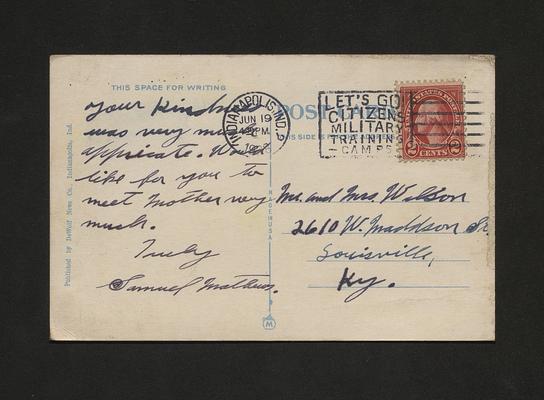 THIS SPACE FOR WRITING
your kindness
was very much
appricate. Would
like for you to
meet Mother very
much.
Truly
Samuel Mathews.
Published by DeWolf News Co., Indianapolis, Ind.
MADE IN USA
INDIANAPOLIS, IND.
JUN 19
PM
POST CARD
THIS SIDE IS
LET'S GO!
CITIZENS
MILITARY
TRAINING
CAMPS
2 CENTS 2
Mr. and Mrs. Wilson
2610 W. Maddson St.
Louisville,
Ky.